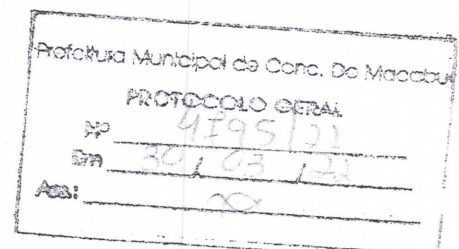 Prefeitura Municipal de Conc. De Macabu
PROTOCOLO GERAL
Nº 4195/22
Em 30/03/22
Ass: